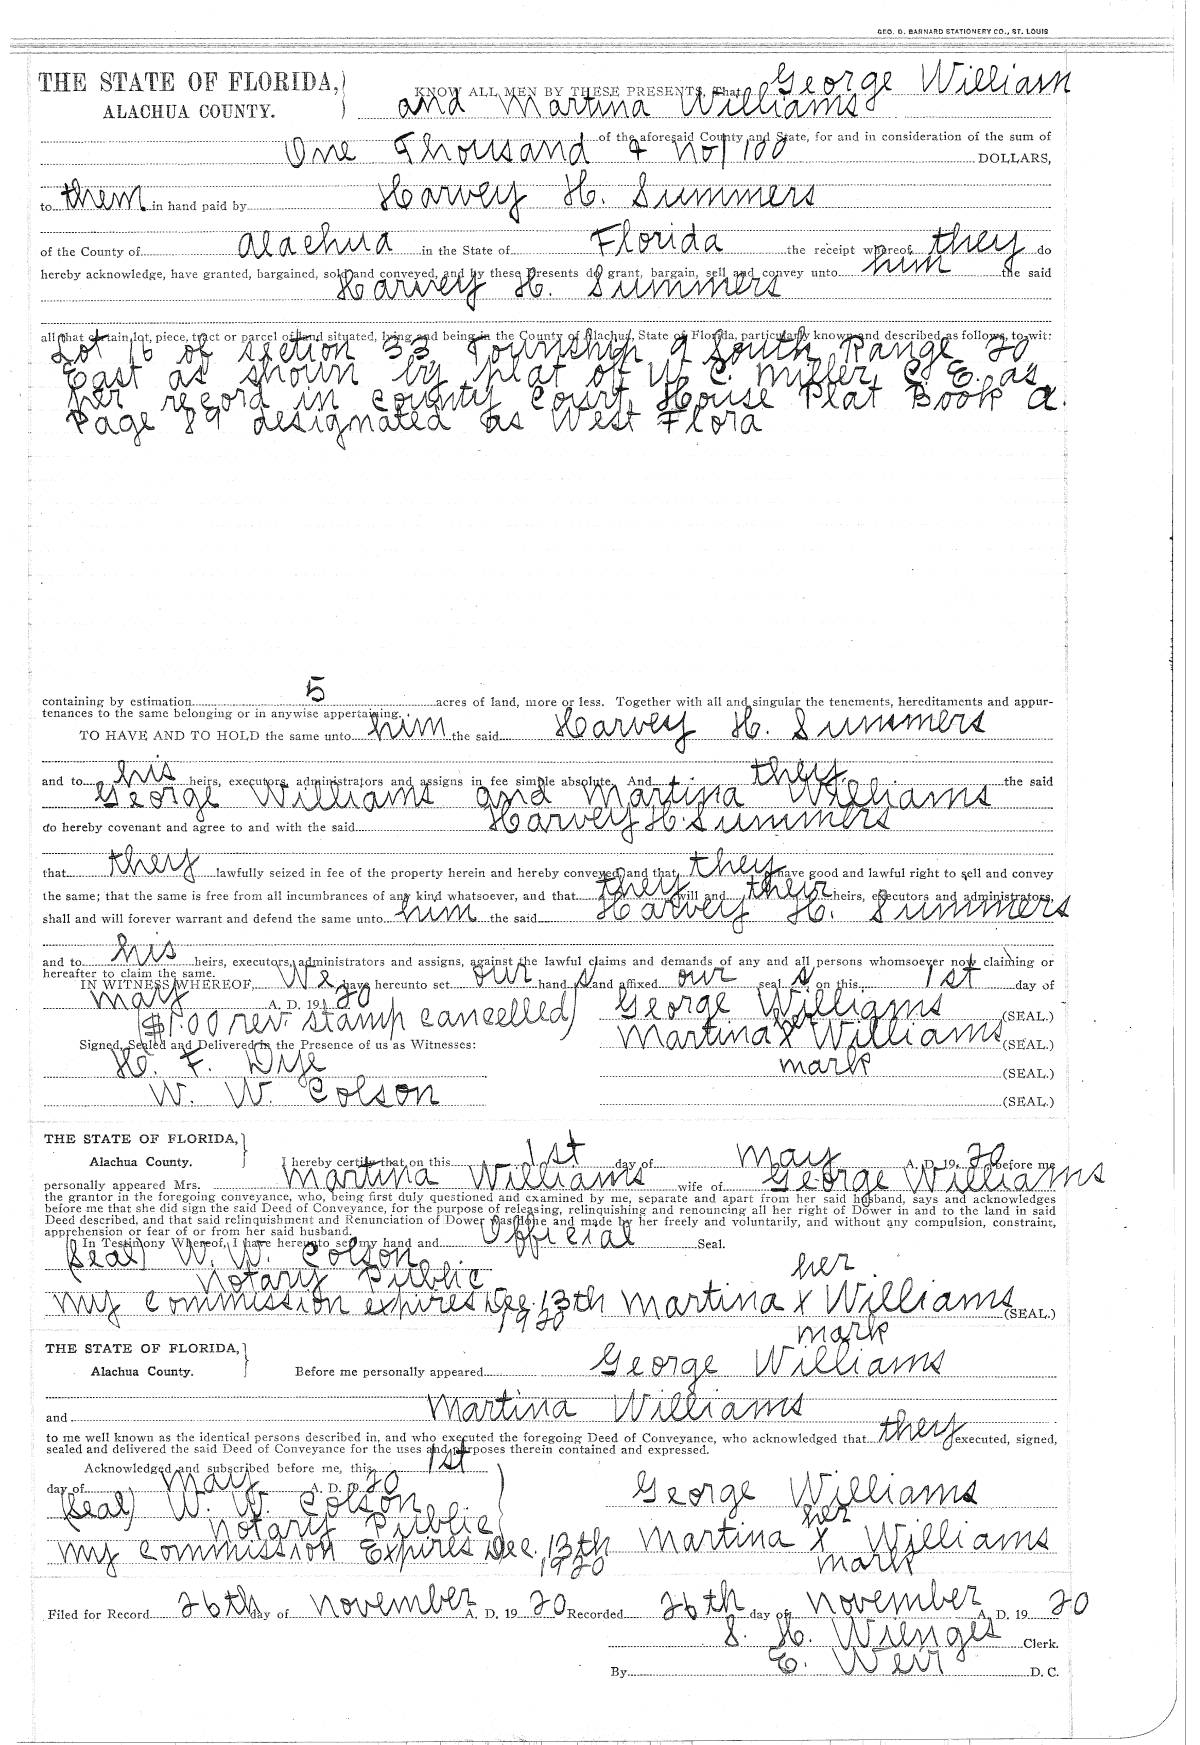 GEO. D. BARNARD STATIONERY CO., ST. LOUIS
THE STATE OF FLORIDA,
ALACHUA COUNTY.
KNOW ALL MEN BY THESE PRESENTS, That George William
and Martina Williams
of the aforesaid County and State, for and in consideration of the sum of
One Thousand & no/100 DOLLARS,
to them in hand paid by Harvey H. Summers
of the County of Alachua in the State of Florida the receipt whereof they do
hereby acknowledge, have granted, bargained, sold and conveyed, and by these Presents do grant, bargain, sell and convey unto him the said
Harvey H. Summers
all that certain lot, piece, tract or parcel of land situated, lying and being in the County of Alachua, State of Florida, particularly known and described as follows, to wit:
Lot 16 of section 33 Township 9 South Range 20
East as shown by plat of W. C. Miller C. E. as
her record in county Court House Plat Book a.
Page 89 designated as West Flora
containing by estimation 5 acres of land, more or less. Together with all and singular the tenements, hereditaments and appur-
tenances to the same belonging or in anywise appertaining.
TO HAVE AND TO HOLD the same unto him the said Harvey H. Summers
and to his heirs, executors, administrators and assigns in fee simple absolute. And they the said
George Williams and Martina Williams
do hereby covenant and agree to and with the said Harvey H. Summers
that they lawfully seized in fee of the property herein and hereby conveyed and that they have good and lawful right to sell and convey
the same; that the same is free from all incumbrances of any kind whatsoever, and that they will and their heirs, executors and administrators
shall and will forever warrant and defend the same unto him the said Harvey H. Summers
and to his heirs, executors, administrators and assigns, against the lawful claims and demands of any and all persons whomsoever now claiming or
hereafter to claim the same.
IN WITNESS WHEREOF, We have hereunto set our hand s and affixed our seal s on this 1st day of
May A. D. 19 20
($1.00 rev. stamp cancelled) George Williams (SEAL.)
Martina x Williams (SEAL.)
Signed, Sealed and Delivered in the Presence of us as Witnesses:
H. F. Dye mark (SEAL.)
W. W. Colson (SEAL.)
THE STATE OF FLORIDA,
Alachua County.
I hereby certify that on this 1st day of May A. D. 19 20 before me
personally appeared Mrs. Martina Williams wife of George Williams
the grantor in the foregoing conveyance, who, being first duly questioned and examined by me, separate and apart from her said husband, says and acknowledges
before me that she did sign the said Deed of Conveyance, for the purpose of releasing, relinquishing and renouncing all her right of Dower in and to the land in said
Deed described, and that said relinquishment and Renunciation of Dower was done and made by her freely and voluntarily, and without any compulsion, constraint,
apprehension or fear of or from her said husband.
In Testimony Whereof, I have hereunto set my hand and Official Seal.
(Seal) W. W. Colson
Notary Public her
My commission expires Dec. 13th Martina x Williams (SEAL.)
1920 mark
THE STATE OF FLORIDA,
Alachua County.
Before me personally appeared George Williams
and Martina Williams
to me well known as the identical persons described in, and who executed the foregoing Deed of Conveyance, who acknowledged that they executed, signed,
sealed and delivered the said Deed of Conveyance for the uses and purposes therein contained and expressed.
Acknowledged and subscribed before me, this 1st
day of May A. D. 20
(Seal) W. W. Colson George Williams
Notary Public her
My commission Expires Dec. 13th Martina x Williams
1920 mark
Filed for Record 26th day of November A. D. 19 20 Recorded 26th day of November A. D. 19 20
S. H. Wienges Clerk.
By E. Weir D. C.